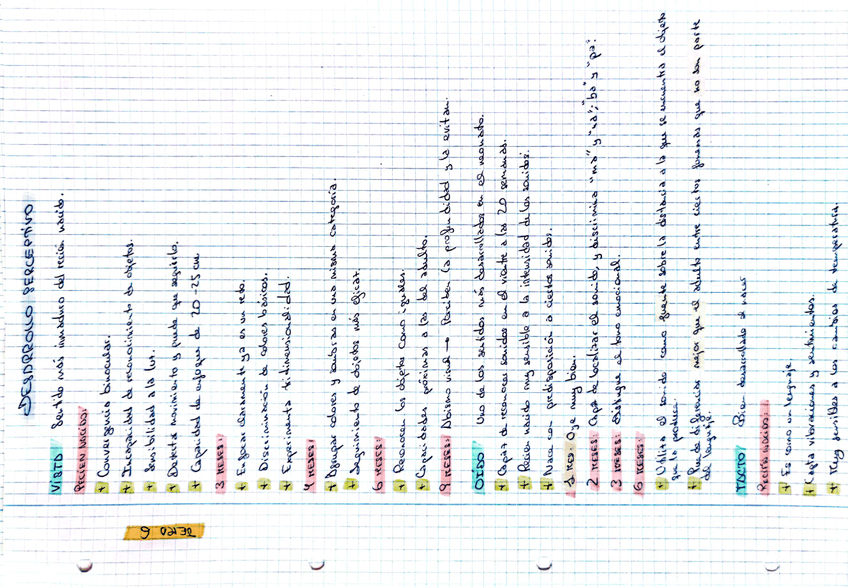 TEMA 6
DESARROLLO PERCEPTIVO
VISTA Sentido más inmaduro del recién nacido.
RECIÉN NACIDO:
+ Convergencia binocular.
+ Incapacidad de reconocimiento de objetos.
+ Sensibilidad a la luz.
+ Detecta movimiento y puede que seguirlo.
+ Capacidad de enfoque de 20-25 cm
3 MESES:
+ Enfocar claramente ya es un reto.
+ Discriminación de colores básicos.
+ Experimenta tridimensionalidad.
4 MESES:
+ Agrupar colores y sombras en una misma categoría.
+ Seguimiento de objetos más eficaz.
6 MESES:
+ Reconocen los objetos como iguales.
+ Capacidades próximas a las del adulto.
9 MESES: Abismo visual → Perciben la profundidad y la evitan.
OÍDO Uno de los sentidos más desarrollados en el neonato.
+ Capaz de reconocer sonidos en el vientre a las 20 semanas.
+ Recién nacido muy sensible a la intensidad de los sonidos.
+ Nace con predisposición a ciertos sonidos.
1 MES: Oye muy bien.
2 MESES: Capaz de localizar el sonido, y discrimina "ma" y "na"; "ba" y "pa".
3 MESES: Distingue el tono emocional.
6 MESES:
+ Utiliza el sonido como fuente sobre la distancia a la que se encuentra el objeto
que lo produce.
+ Puede diferenciar mejor que el adulto entre ciertos fonemas que no son parte
del lenguaje.
TACTO Bien desarrollado al nacer
RECIÉN NACIDO:
+ Es como un lenguaje.
+ Capta vibraciones y sentimientos.
+ Muy sensibles a los cambios de temperatura.